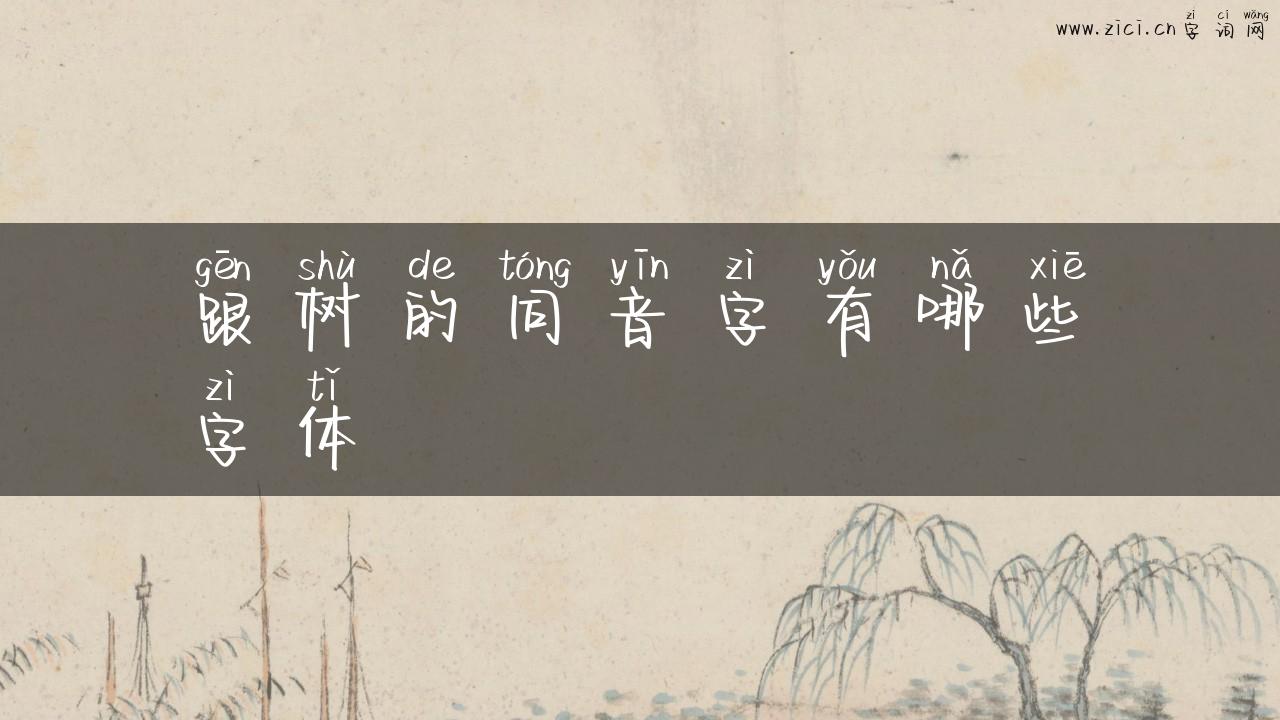 zì cí wǎng
www.zici.cn 字词网
gēn shù de tóng yīn zì yǒu nǎ xiē
跟树的同音字有哪些
zì tǐ
字体